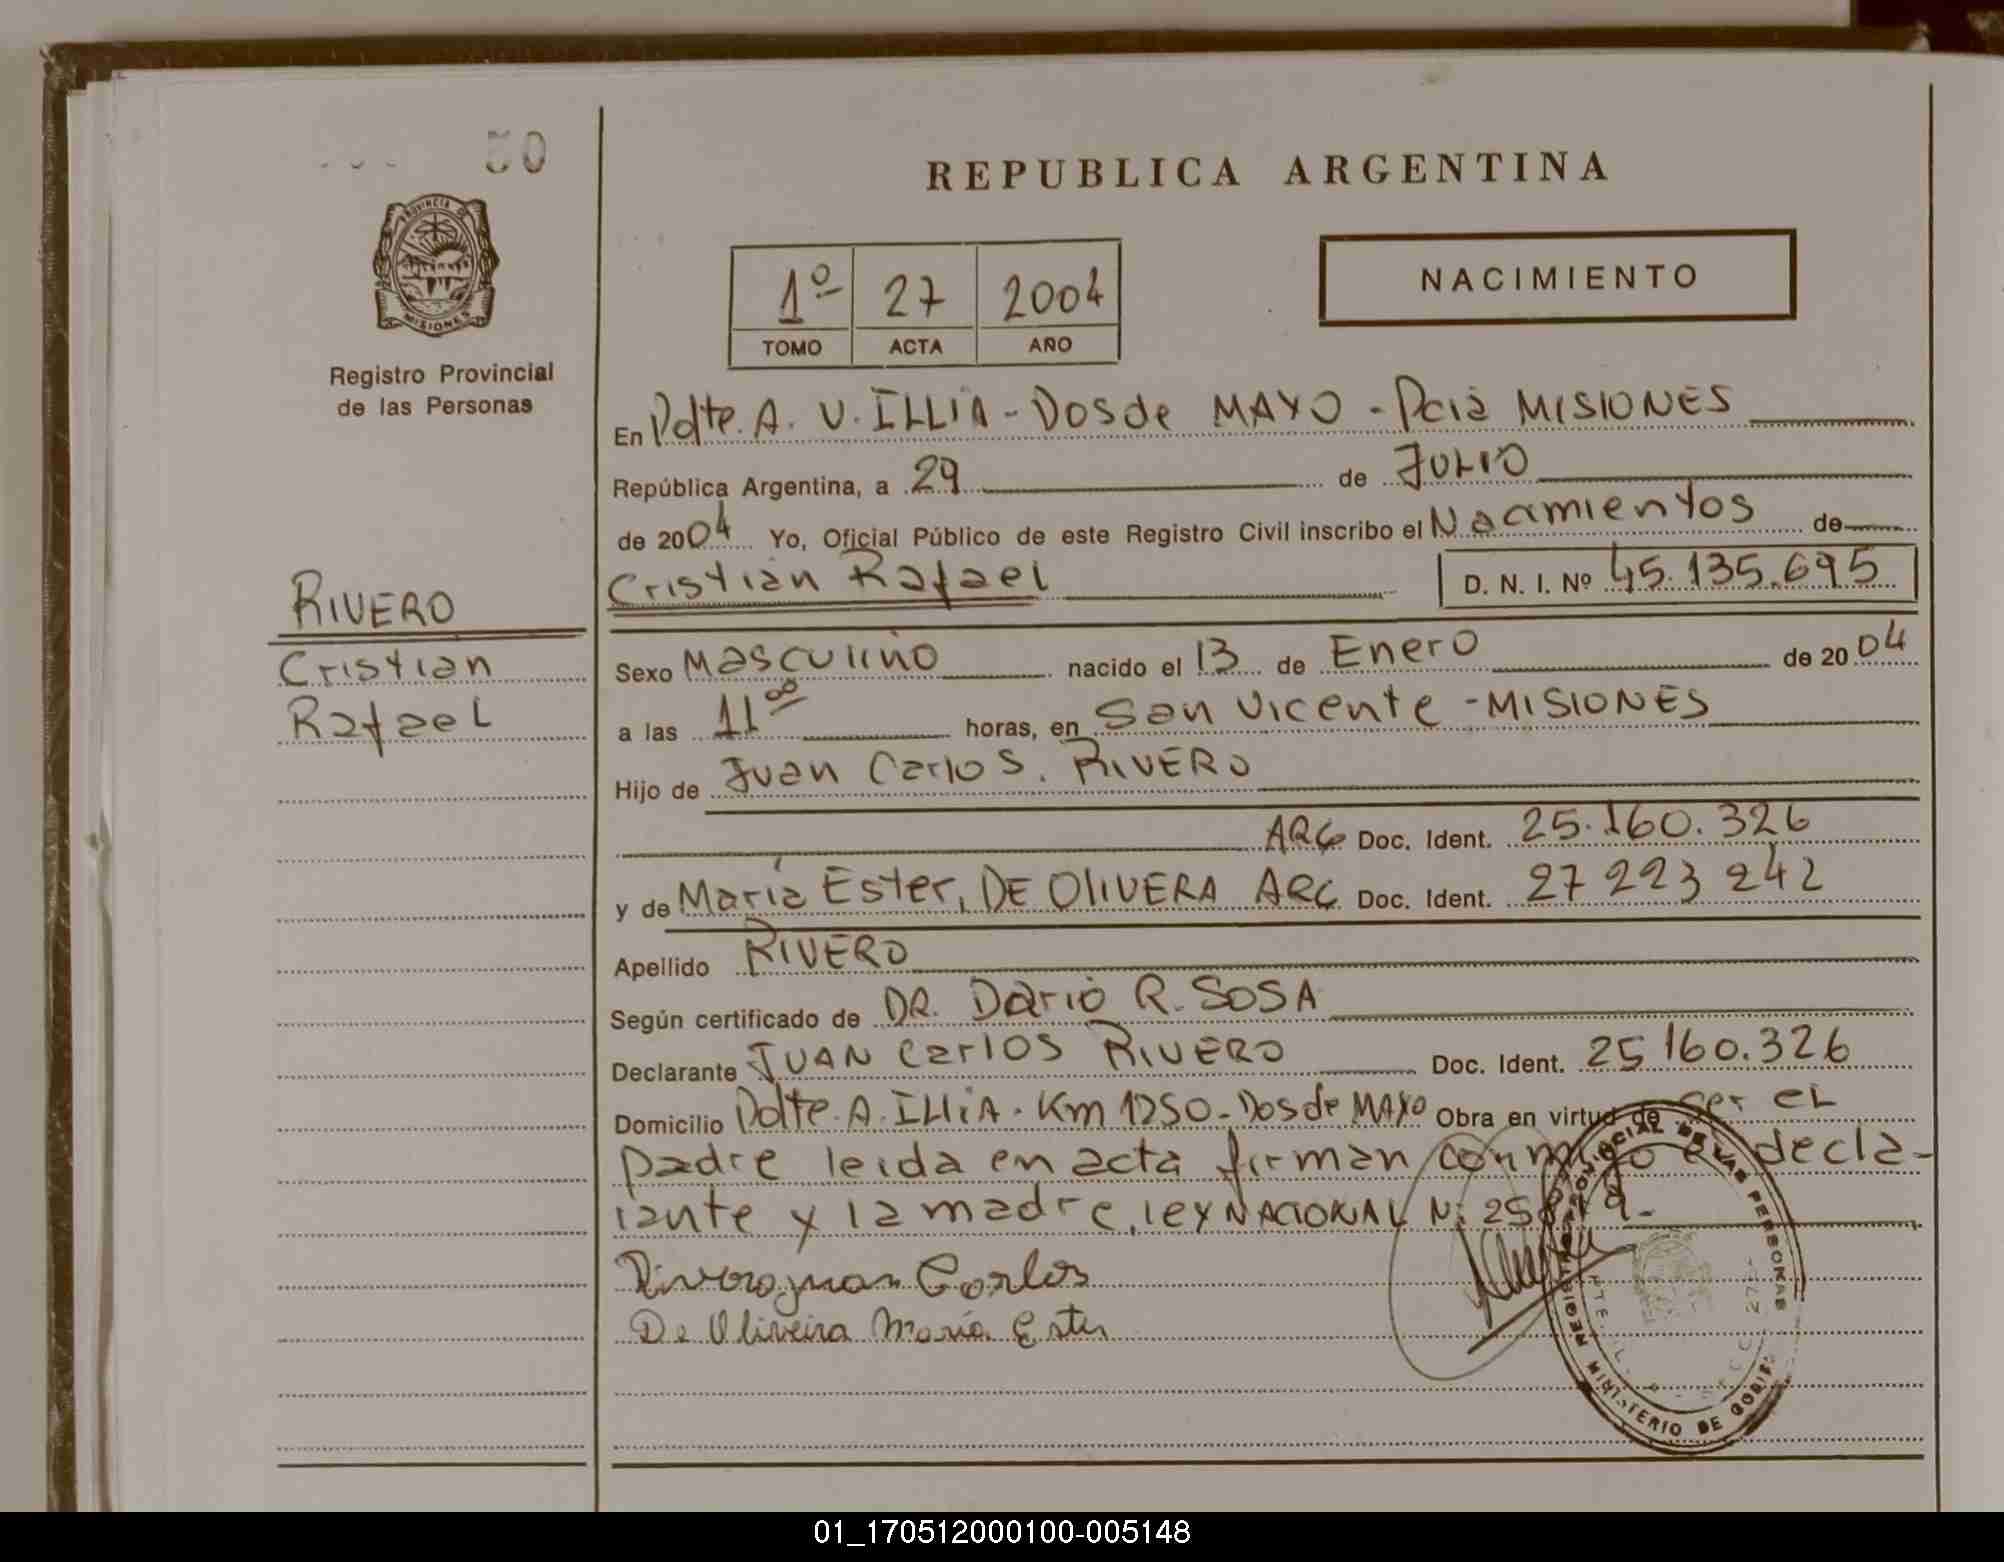 50
PROVINCIA DE
MISIONES
Registro Provincial
de las Personas
RIVERO
Cristian
Rafael
REPUBLICA ARGENTINA
1º 27 2004
TOMO ACTA AÑO
NACIMIENTO
En Pdte. A. U. ILLIA - Dos de MAYO - Pcia MISIONES
República Argentina, a 29 de JULIO
de 2004 Yo, Oficial Público de este Registro Civil inscribo el Nacimientos de
Cristian Rafael D. N. I. Nº 45.135.695
Sexo Masculino nacido el 13 de Enero de 2004
a las 11 00 horas, en San Vicente - MISIONES
Hijo de Juan Carlos. RIVERO
ARG Doc. Ident. 25.160.326
y de María Ester, DE OLIVERA ARG Doc. Ident. 27 223 242
Apellido RIVERO
Según certificado de DR. Dario R. SOSA
Declarante JUAN Carlos RIVERO Doc. Ident. 25 160.326
Domicilio Pdte. A. ILLIA. Km 1250 - Dos de MAYO Obra en virtud de ser el
padre leida en acta firman conmigo el decla-
rante y la madre, ley NACIONAL Nº
Rivero juan Carlos
De Oliveira María Ester
MINISTERIO DE GOBIERNO
REGISTRO PROVINCIAL DE LAS PERSONAS
01_170512000100-005148